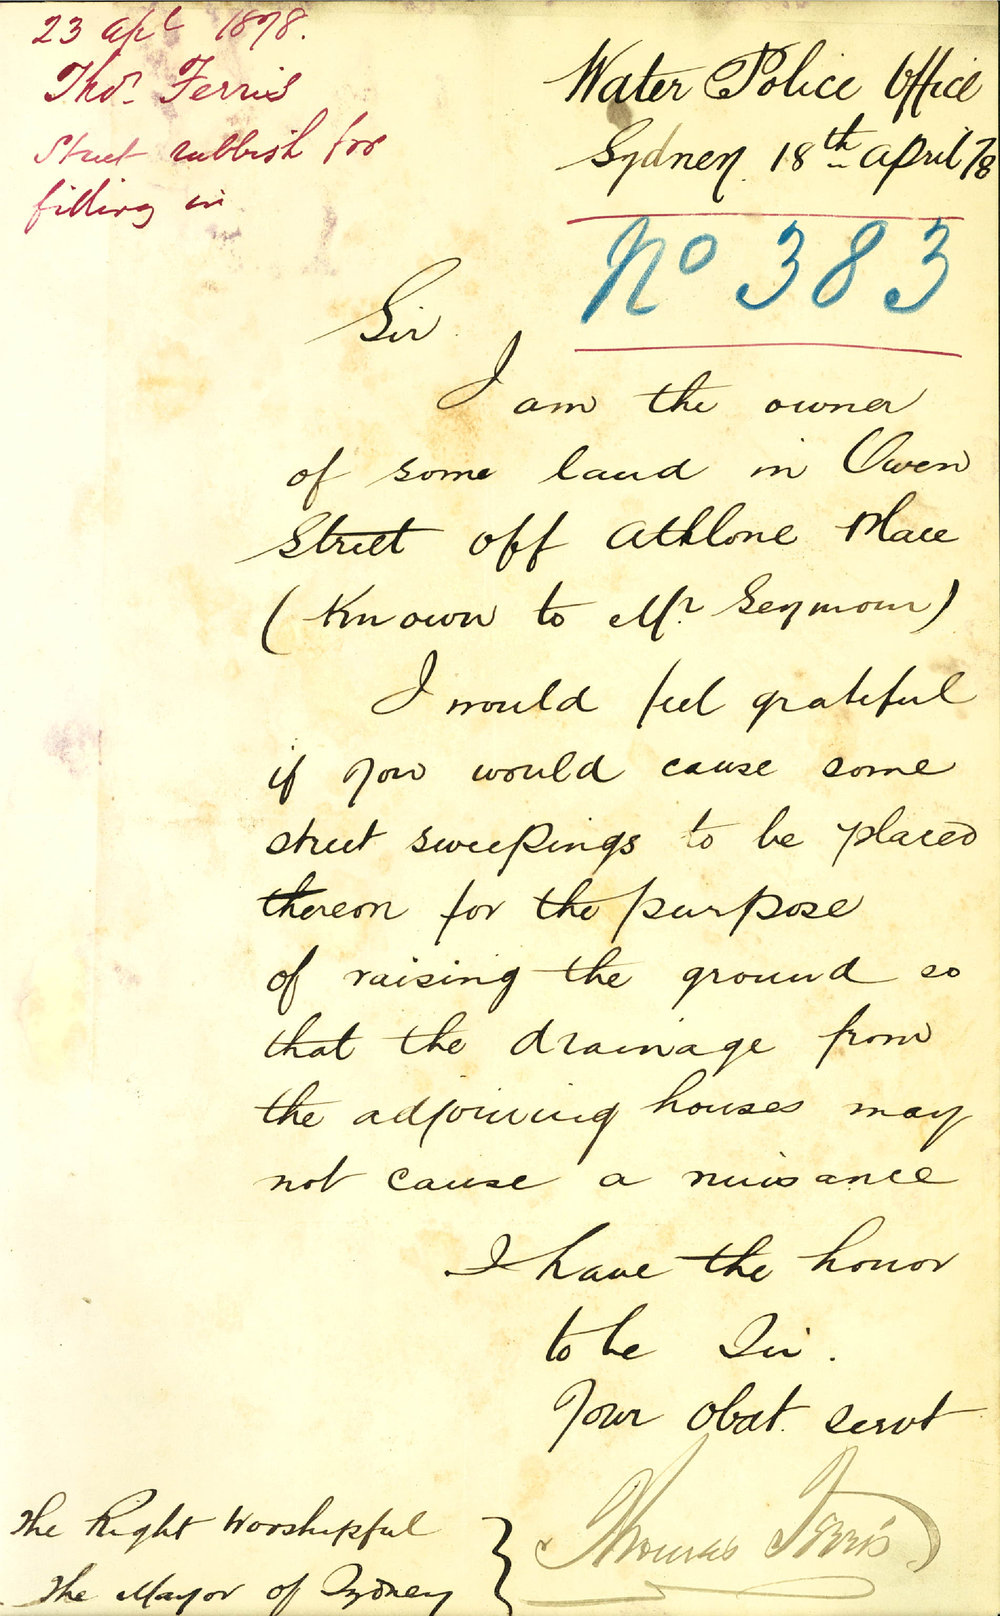 23 Apl 1878.
Thos. Ferris
Street rubbish for
filling in
Water Police Office
Sydney 18th April 78
No 383
Sir
I am the owner
of some land in Owen
Street off Athlone Place
(Known to Mr Seymour)
I would feel grateful
if you would cause some
street sweepings to be placed
thereon for the purpose
of raising the ground so
that the drainage from
the adjoining houses may
not cause a nuisance
I have the honor
to be Sir.
Your obdt. servt
Thomas Ferris
The Right Worshipful
The Mayor of Sydney